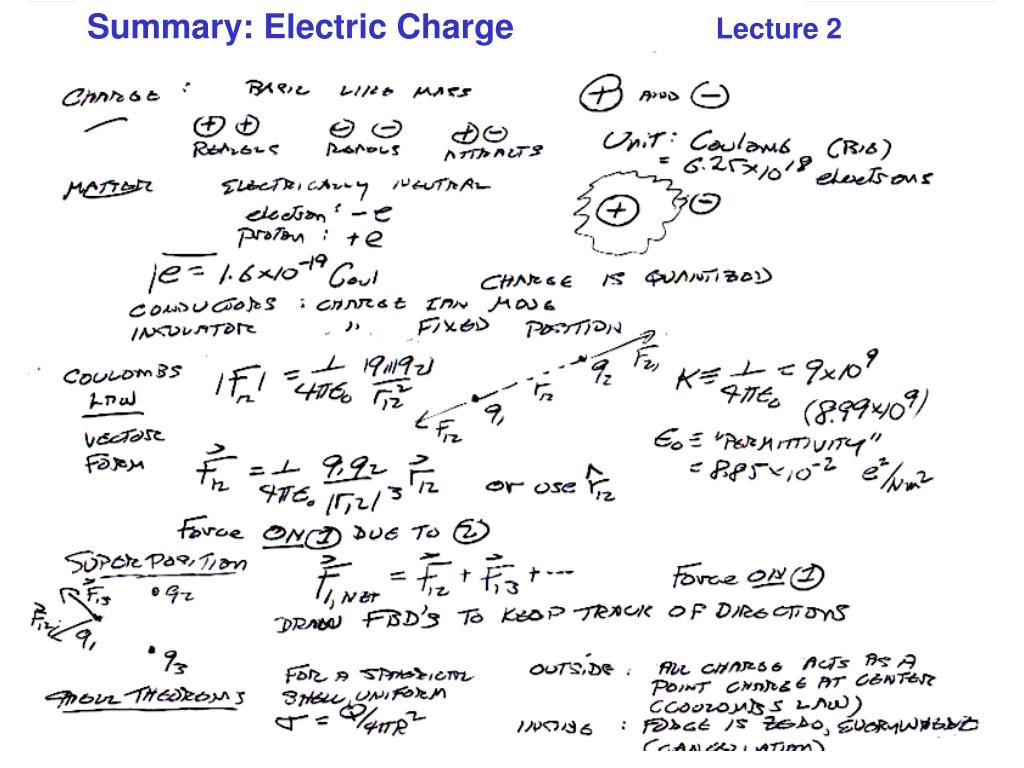 Summary: Electric Charge Lecture 2
CHARGE : BASIC LIKE MASS + AND -
+ + - - + -
REPELS REPELS ATTRACTS
Unit: Coulomb (BIG)
= 6.25×10^18 electrons
MATTER ELECTRICALLY NEUTRAL
electron: -e
proton: +e
+ -
|e = 1.6×10^-19 Coul CHARGE IS QUANTIZED
CONDUCTORS : CHARGE CAN MOVE
INSULATOR " FIXED POSITION
COULOMBS LAW |F12| = 1/4πε0 |q1||q2|/r12^2
F12 q1 r12 q2 F21
K ≡ 1/4πε0 = 9×10^9
(8.99×10^9)
ε0 ≡ "PERMITTIVITY"
= 8.85×10^-2 e^2/Nm^2
VECTOR FORM F⃗12 = 1/4πε0 q1q2/|r12|^3 r⃗12 or use r̂12
Force ON 1 DUE TO 2
SUPERPOSITION F⃗1,NET = F⃗12 + F⃗13 + ... Force ON 1
F⃗13 q2
F⃗12 q1
q3
DRAW FBD'S TO KEEP TRACK OF DIRECTIONS
SHELL THEOREMS
FOR A SPHERICAL
SHELL, UNIFORM
σ = Q/4πR^2
OUTSIDE : ALL CHARGE ACTS AS A
POINT CHARGE AT CENTER
(COULOMBS LAW)
INSIDE : FORCE IS ZERO, EVERYWHERE
(CANCELLATION)